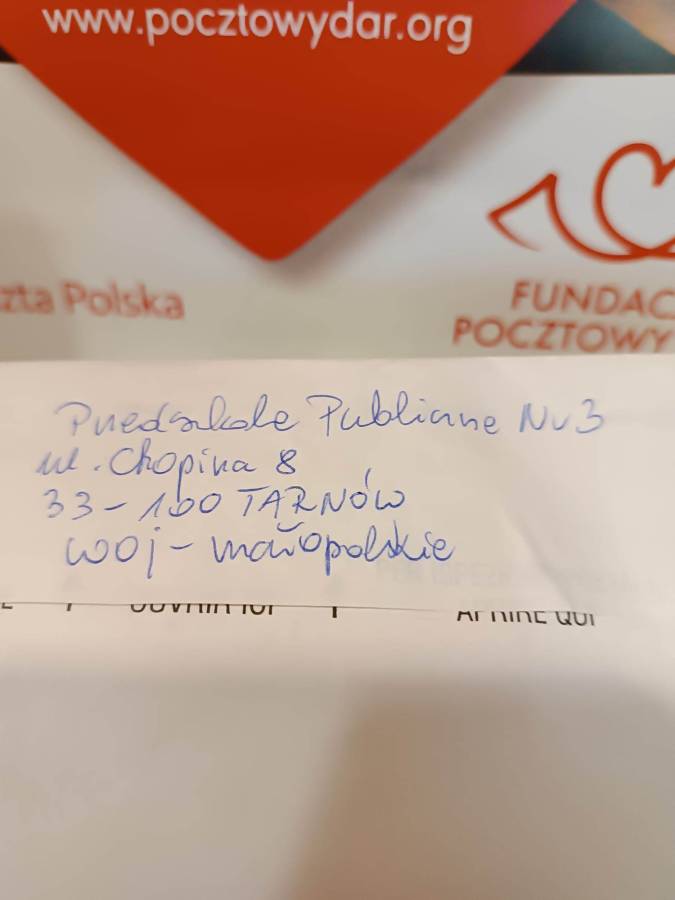 www.pocztowydar.org
zta Polska
FUNDAC
POCZTOWY
Przedszkole Publiczne Nr 3
ul. Chopina 8
33-100 TARNÓW
woj - małopolskie
OUVRIR ICI
APRIRE QUI